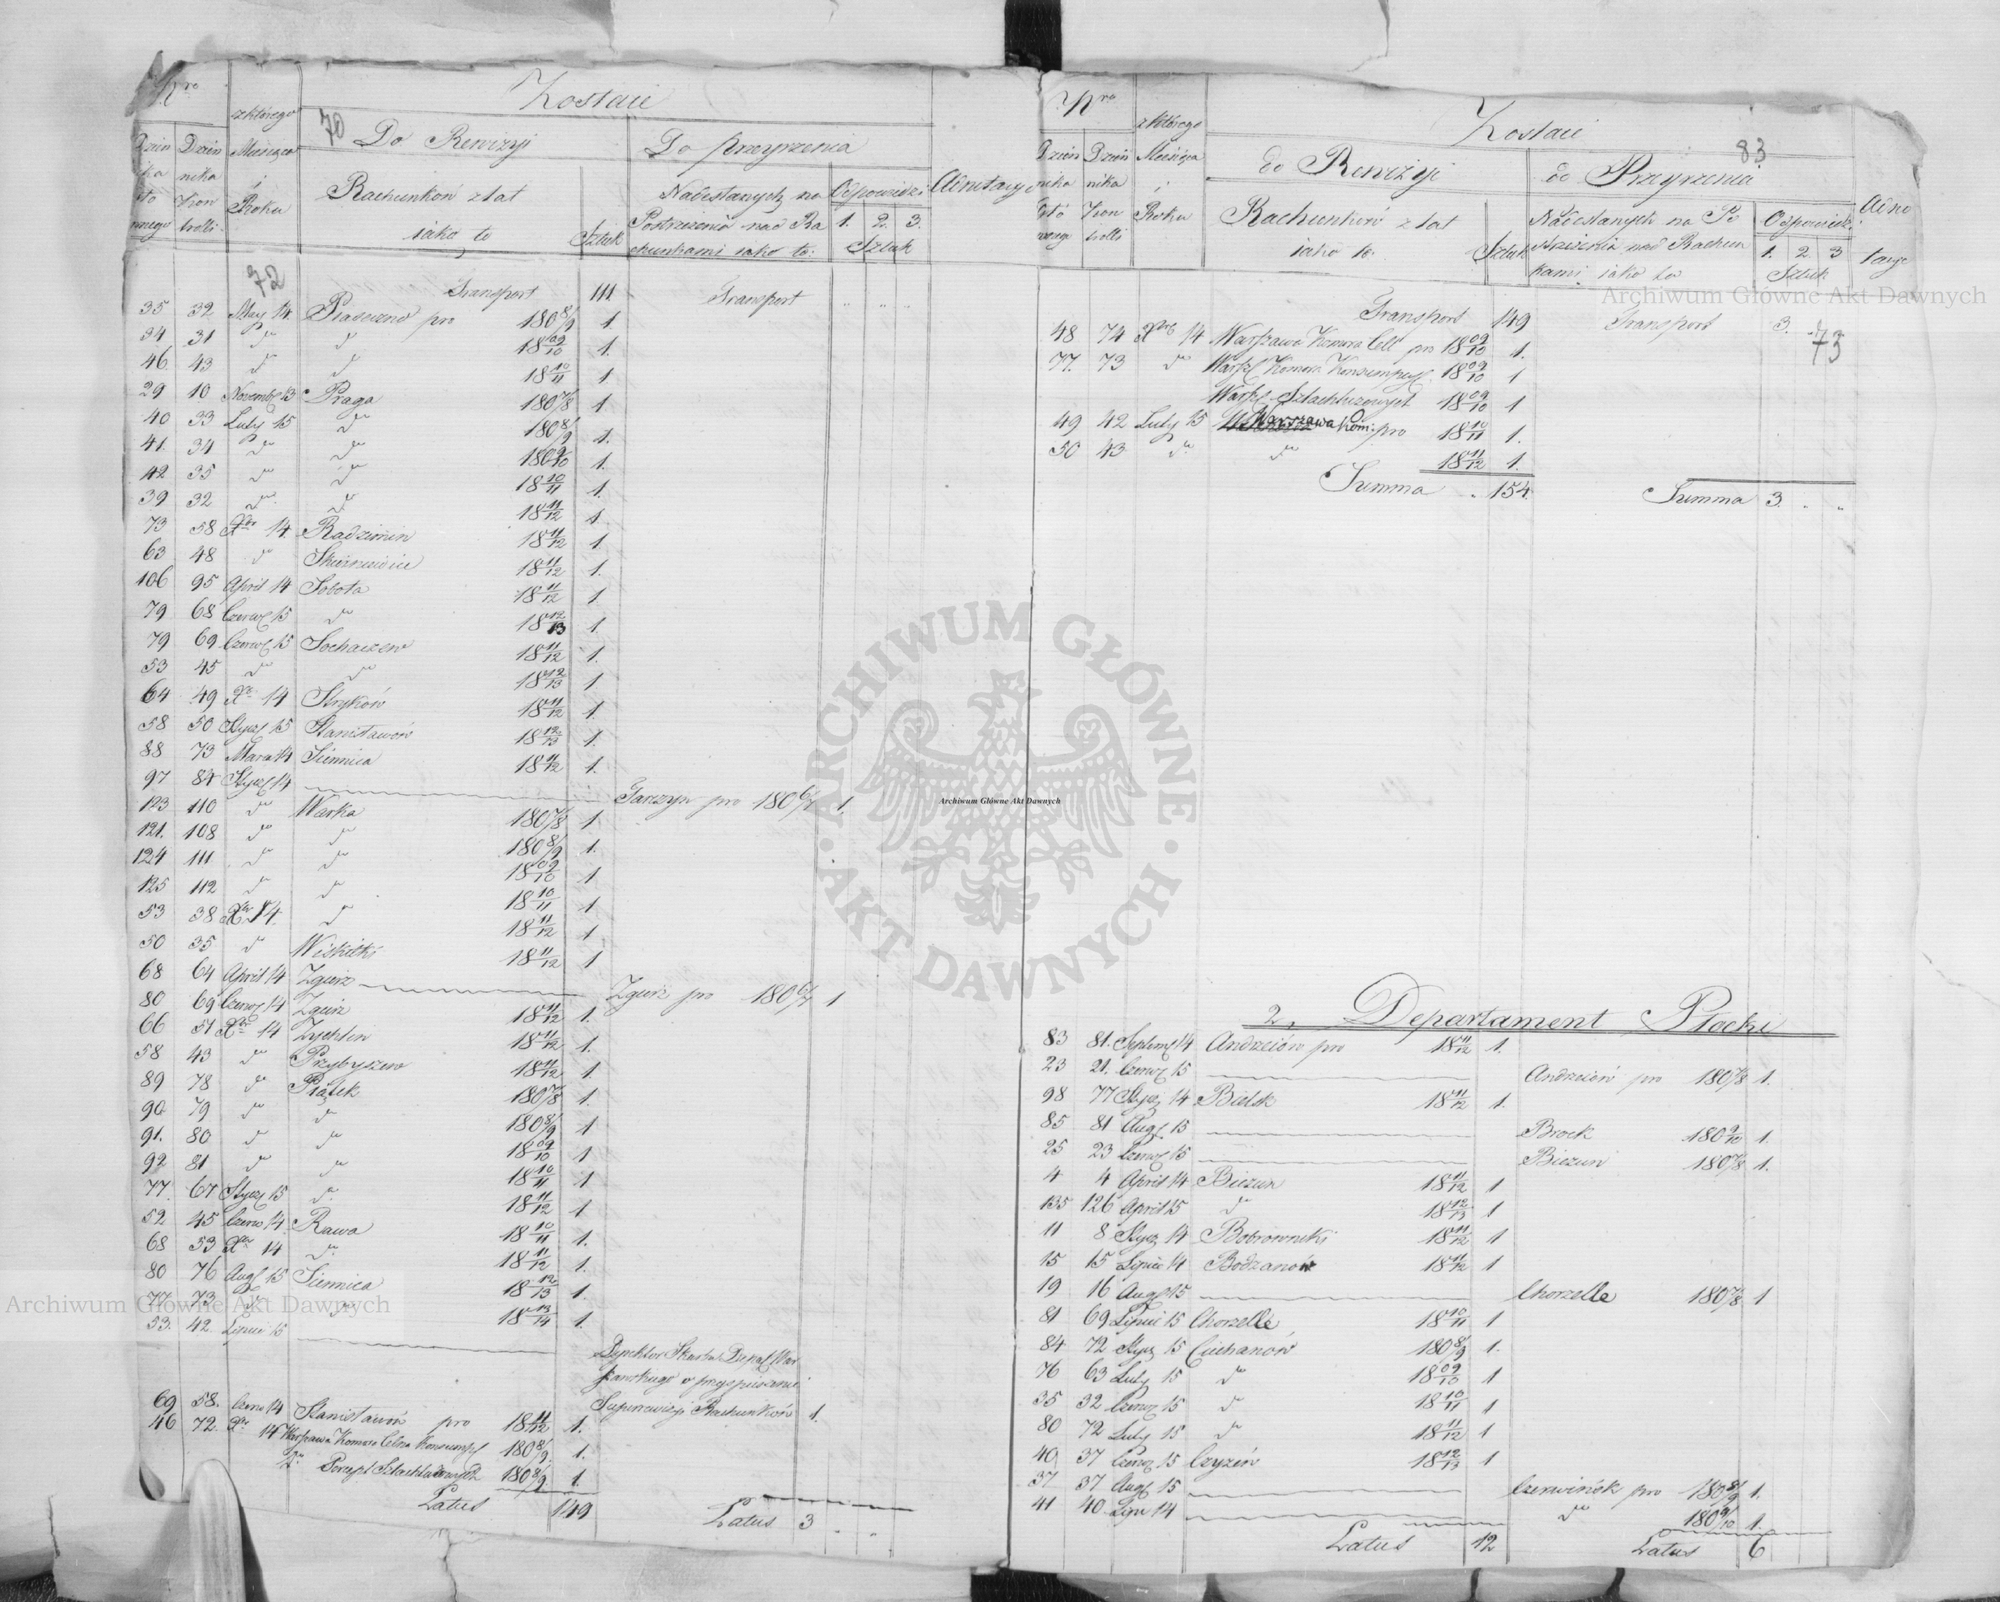 Nro
z którego Miesiąca i Roku
Zostaie
70
Dzien nika Kon trolli
Do Rewizyi
Do przeyrzenia
Rachunków z lat iako to
Sztuk
Nadesłanych na Postrzeżenia nad Ra chunkami iako to:
Odpowiedzi
1. 2. 3.
Sztuk
72
Transport 111 Transport
35 32 May 14 Piaseczno pro 180 8/9 1.
34 31 do do 18 09/10 1.
46 43 do do 18 10/11 1
29 10 Novembr 13 Praga 180 7/8 1
40 33 Luty 15 do 180 8/9 1.
41. 34 do do 180 9/10 1.
42 35 do do 18 10/11 1.
39 32 do do 18 11/12 1.
73 58 Xbr 14 Radzimin 18 11/12 1
63 48 do Skierniewice 18 11/12 1.
106 95 April 14 Sobota 18 11/12 1
79 68 Czerw 15 do 18 12/13 1
79 69 Czerw 15 Sochaczew 18 11/12 1.
53 45 do do 18 12/13 1
64 49 Xr 14 Stryków 18 11/12 1.
58 50 Stycz 15 Stanisławów 18 12/13 1.
88 73 Marca 14 Siennica 18 11/12 1.
97 84 Stycz 14 Tarczyn pro 180 6/7 1.
123 110 do Warka 180 7/8 1
121. 108 do do 180 8/9 1.
124 111 do do 18 09/10 1
125 112 do do 18 10/11 1
53 38 Xbr 14. do 18 11/12 1
50 35 do Wiskitki 18 11/12 1
68 64 April 14 Zgierz Zgierz pro 180 6/7 1
80 69 Czerw 14 Zgierz 18 11/12 1.
66 51 Xbr 14 Zychlin 18 11/12 1.
58 43 do Przybyszew 18 11/12 1
89 78 do Piątek 180 7/8 1.
90 79 do do 180 8/9 1
91. 80 do do 18 09/10 1
92 81 do do 18 10/11 1
77. 67 Stycz 15 do 18 11/12 1
52 45 Czerw 14 Rawa 18 10/11 1.
68 53 Xbr 14 do 18 11/12 1.
80 76 Aug 15 Siennica 18 12/13 1.
77 73 do do 18 13/14 1.
53. 42. Lipiec 15
Dyrektor Skarbu Depat War
Superrewizyi Rachunków 1.
69 58. Czerw 14 Stanisławów pro 18 11/12 1.
46 72. Xbr 14 Warszawa Komora Celna Konsumpt 180 8/9 1.
do Percept Szlachtuzowych 180 8/9 1.
Latus 149 Latus 3
Nro
z którego Miesiąca i Roku
Zostaie
83
Dzien nika Kon trolli
do Rewizyi
do Przeyrzenia
Rachunków z lat iako to.
Sztuk
Nadesłanych na Po strzeżenia nad Rachun kami iako to
Odpowiedzi
1. 2. 3
Sztuk
73
Transport 149 Transport 3.
48 74 Xbr 14 Warszawa Komora Cell pro 18 09/10 1.
77. 73 do Warsz Komora Konsumpcyi 18 09/10 1
Warsz Szlachtuzowych 18 09/10 1
49 42 Luty 15 Warszawa Kom: pro 18 10/11 1.
50 43 do do 18 11/12 1.
Summa 154 Summa 3
2. Departament Płocki
83 81. Septemb 14 Andrzeiów pro 18 11/12 1.
23 21. Czerw 15 Andrzeiów pro 180 7/8 1.
98 77 Stycz 14 Bielsk 18 11/12 1.
85 81 Aug 15 Brock 180 9/10 1.
25 23 Czerw 15 Biezuń 180 7/8 1.
4 4 April 14 Biezun 18 11/12 1
135 126 April 15 do 18 12/13 1
11 8 Stycz 14 Bobrowniki 18 11/12 1
15 15 Lipiec 14 Bodzanów 18 11/12 1
19 16 Aug 15 Chorzelle 180 7/8 1
81 69 Lipiec 15 Chorzelle 18 10/11 1
84 72 Stycz 15 Ciechanów 180 8/9 1.
76 63 Luty 15 do 18 09/10 1
35 32 Czerw 15 do 18 10/11 1
80 72 Luty 15 do 18 11/12 1
40 37 Czerw 15 Czyzew 18 12/13 1
37 37 Aug 15 Czerwińsk pro 180 8/9 1.
41 40 Lipu 14 do 180 9/10 1.
Latus 12 Latus 6
Archiwum Główne Akt Dawnych
ARCHIWUM GŁÓWNE AKT DAWNYCH
Archiwum Główne Akt Dawnych
Archiwum Główne Akt Dawnych